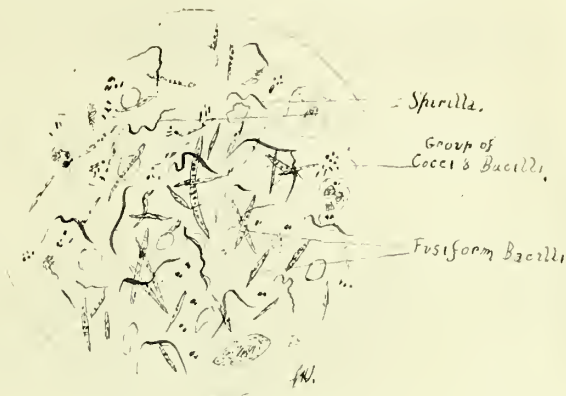 Spirilla.
Group of
Cocci & Bacilli.
Fusiform Bacilli